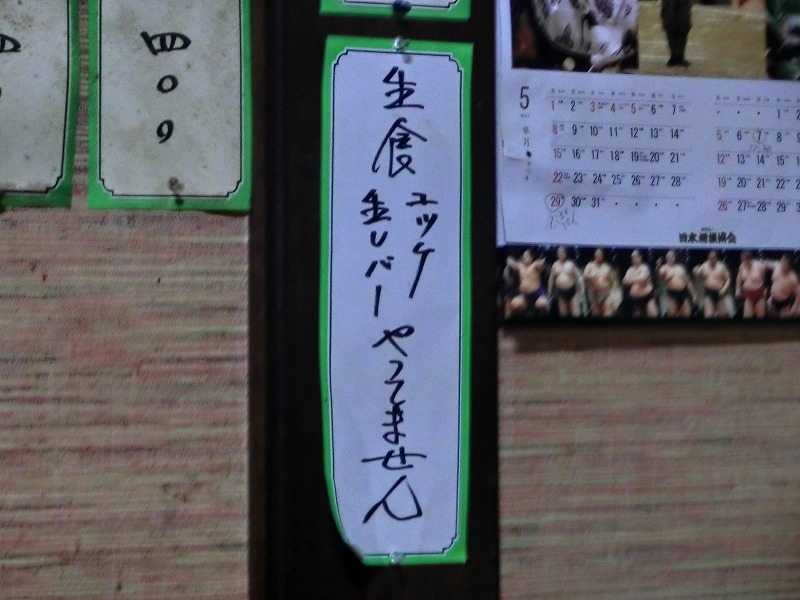 生食
ユッケ
生レバー
やってません
四〇九
5
1 2 3 4 5 6 7
8 9 10 11 12 13 14
15 16 17 18 19 20 21
22 23 24 25 26 27 28
29 30 31
1
5 6 7 8
12 13 14 15
19 20 21 22
26 27 28 29
日本相撲協会